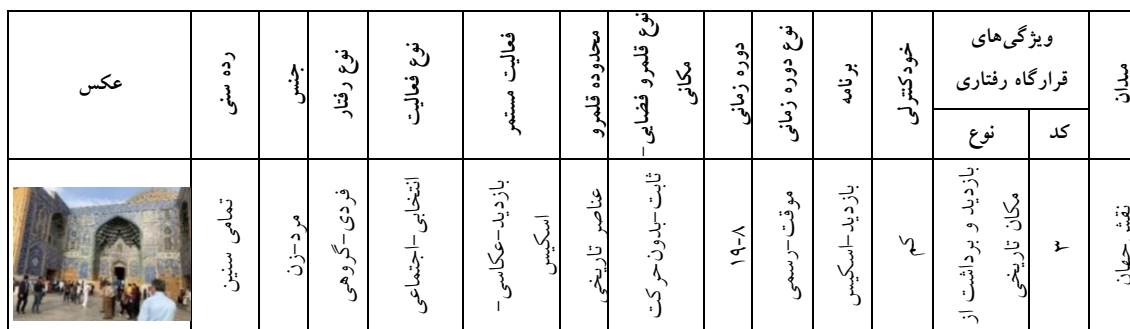 میدان
ویژگی‌های
قرارگاه رفتاری
کد
نوع
خودکنترلی
برنامه
نوع دوره زمانی
دوره زمانی
نوع قلمرو فضایی-
مکانی
محدوده قلمرو
فعالیت مستمر
نوع فعالیت
نوع رفتار
جنس
رده سنی
عکس
نقش جهان
۳
بازدید و برداشت از
مکان تاریخی
کم
بازدید-اسکیس
موقت-رسمی
۸-۱۹
ثابت-بدون حرکت
عناصر تاریخی
بازدید-عکاسی-
اسکیس
انتخابی-اجتماعی
فردی-گروهی
مرد-زن
تمامی سنین